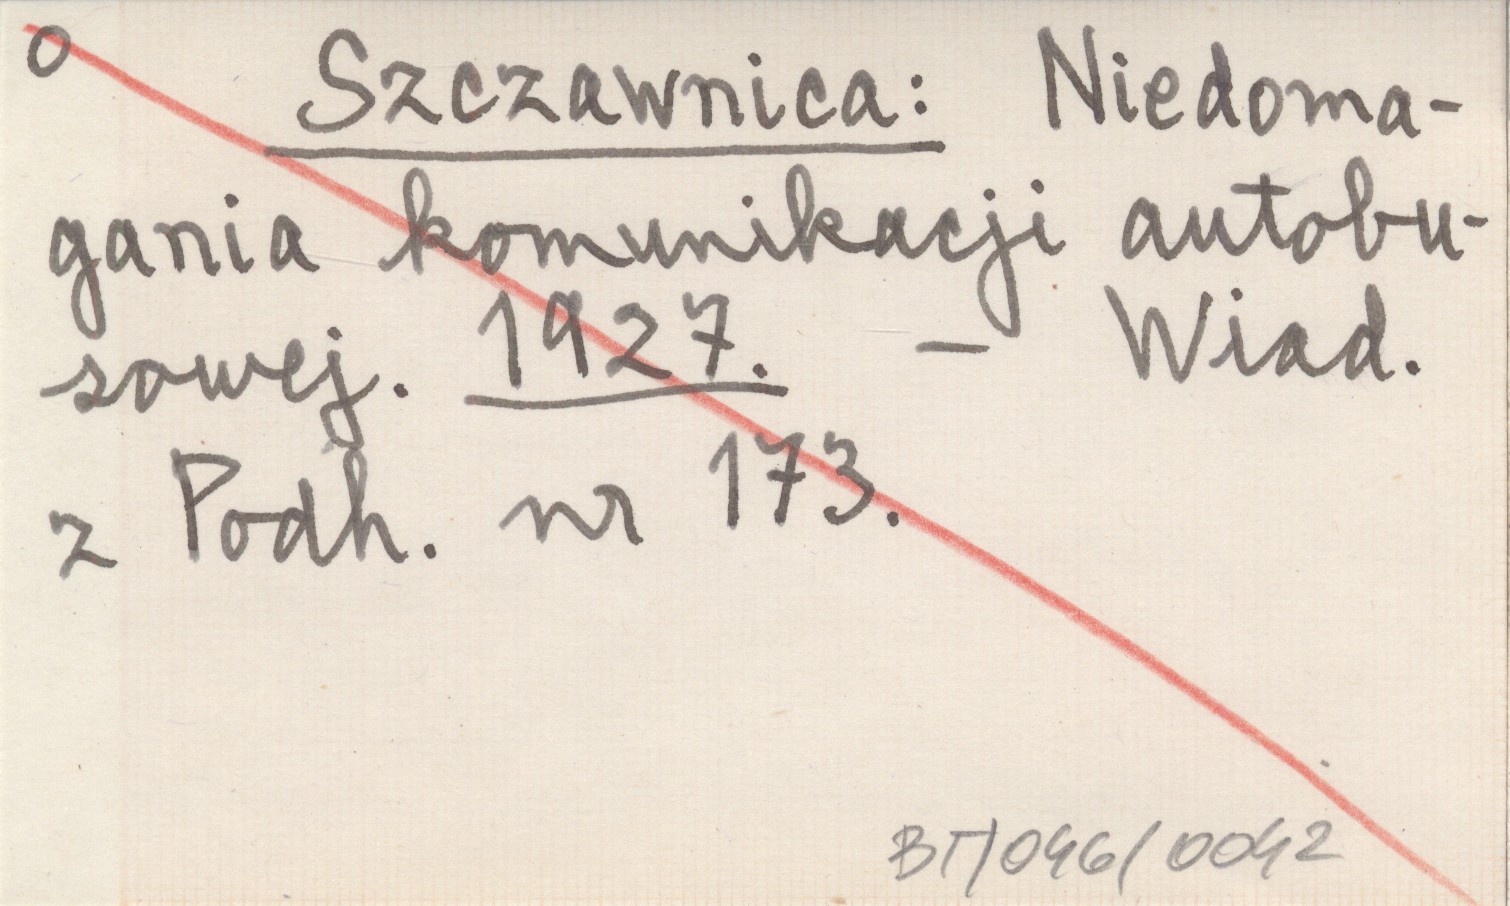 o Szczawnica: Niedoma-
gania komunikacji autobu-
sowej. 1927. — Wiad.
z Podh. nr 173.
BT/046/0042